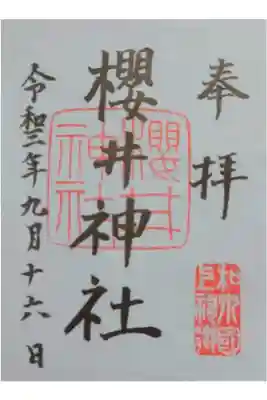 奉拝
櫻井神社
令和三年九月十六日
櫻井
神社